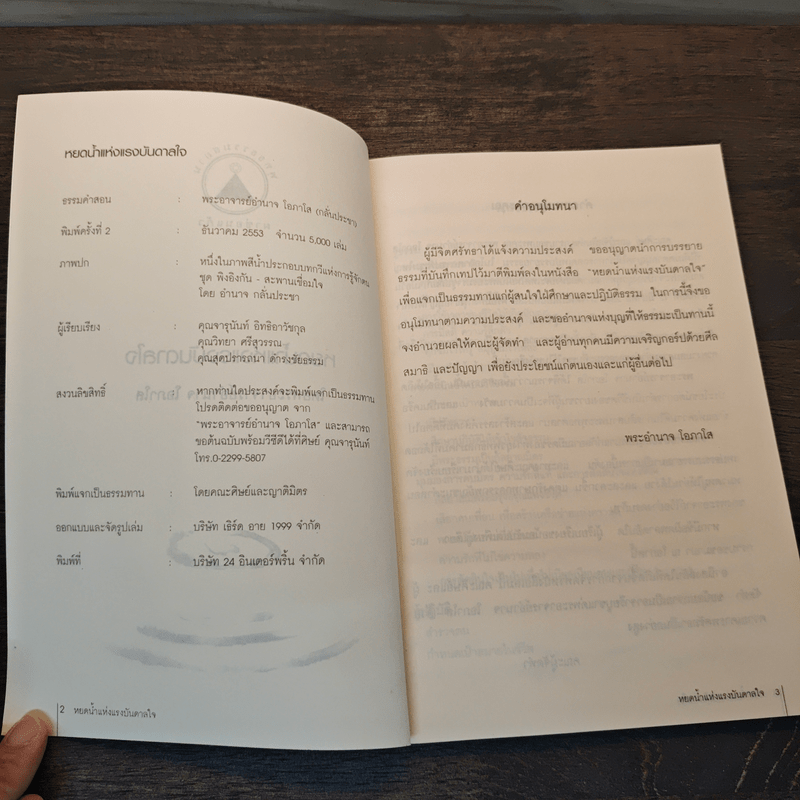 หยดน้ำแห่งแรงบันดาลใจ
ธรรมคำสอน : พระอาจารย์อำนาจ โอภาโส (กลั่นประชา)
พิมพ์ครั้งที่ 2 : ธันวาคม 2553 จำนวน 5,000 เล่ม
ภาพปก : หนึ่งในภาพสีน้ำประกอบบทกวีแห่งการรู้จักตน
ชุด พิงอิงกัน - สะพานเชื่อมใจ
โดย อำนาจ กลั่นประชา
ผู้เรียบเรียง : คุณจารุนันท์ อิทธิอาวัชกุล
คุณวิทยา ศรีสุวรรณ
คุณสุดปรารถนา ดำรงชัยธรรม
สงวนลิขสิทธิ์ : หากท่านใดประสงค์จะพิมพ์แจกเป็นธรรมทาน
โปรดติดต่อขออนุญาต จาก
"พระอาจารย์อำนาจ โอภาโส" และสามารถ
ขอต้นฉบับพร้อมวีซีดีได้ที่ศิษย์ คุณจารุนันท์
โทร.0-2299-5807
พิมพ์แจกเป็นธรรมทาน : โดยคณะศิษย์และญาติมิตร
ออกแบบและจัดรูปเล่ม : บริษัท เธิร์ด อาย 1999 จำกัด
พิมพ์ที่ : บริษัท 24 อินเตอร์พริ้น จำกัด
2 หยดน้ำแห่งแรงบันดาลใจ
คำอนุโมทนา
ผู้มีจิตศรัทธาได้แจ้งความประสงค์ ขออนุญาตนำการบรรยาย
ธรรมที่บันทึกเทปไว้มาตีพิมพ์ลงในหนังสือ "หยดน้ำแห่งแรงบันดาลใจ"
เพื่อแจกเป็นธรรมทานแก่ผู้สนใจใฝ่ศึกษาและปฏิบัติธรรม ในการนี้จึงขอ
อนุโมทนาตามความประสงค์ และขออำนาจแห่งบุญที่ให้ธรรมะเป็นทานนี้
จงอำนวยผลให้คณะผู้จัดทำ และผู้อ่านทุกคนมีความเจริญกอร์ปด้วยศีล
สมาธิ และปัญญา เพื่อยังประโยชน์แก่ตนเองและแก่ผู้อื่นต่อไป
พระอำนาจ โอภาโส
หยดน้ำแห่งแรงบันดาลใจ 3